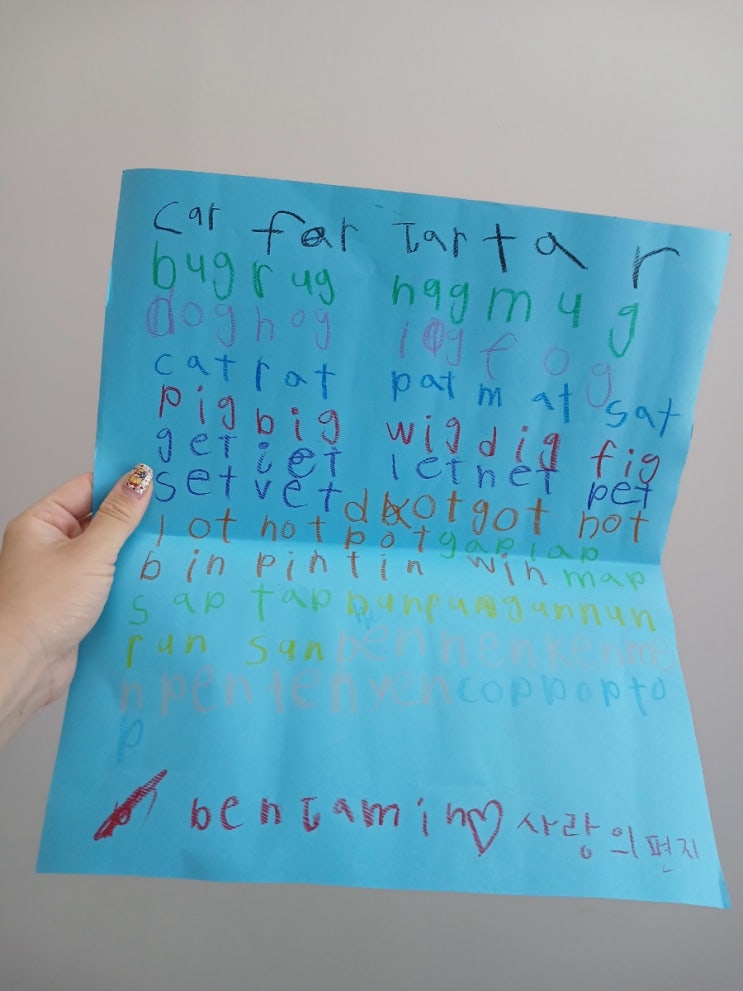 car far Jar tar
bug rug hag mug
dog hog log fog
cat rat pat mat sat
pig big wig dig fig
get jet let net pet
set vet dot got not
lot hot pot gap lap
bin pin tin win map
sap tap bun fun gun nun
run sun ben hen ken me
n pen ten yen cop pop to
p
benJamin♡ 사랑의 편지